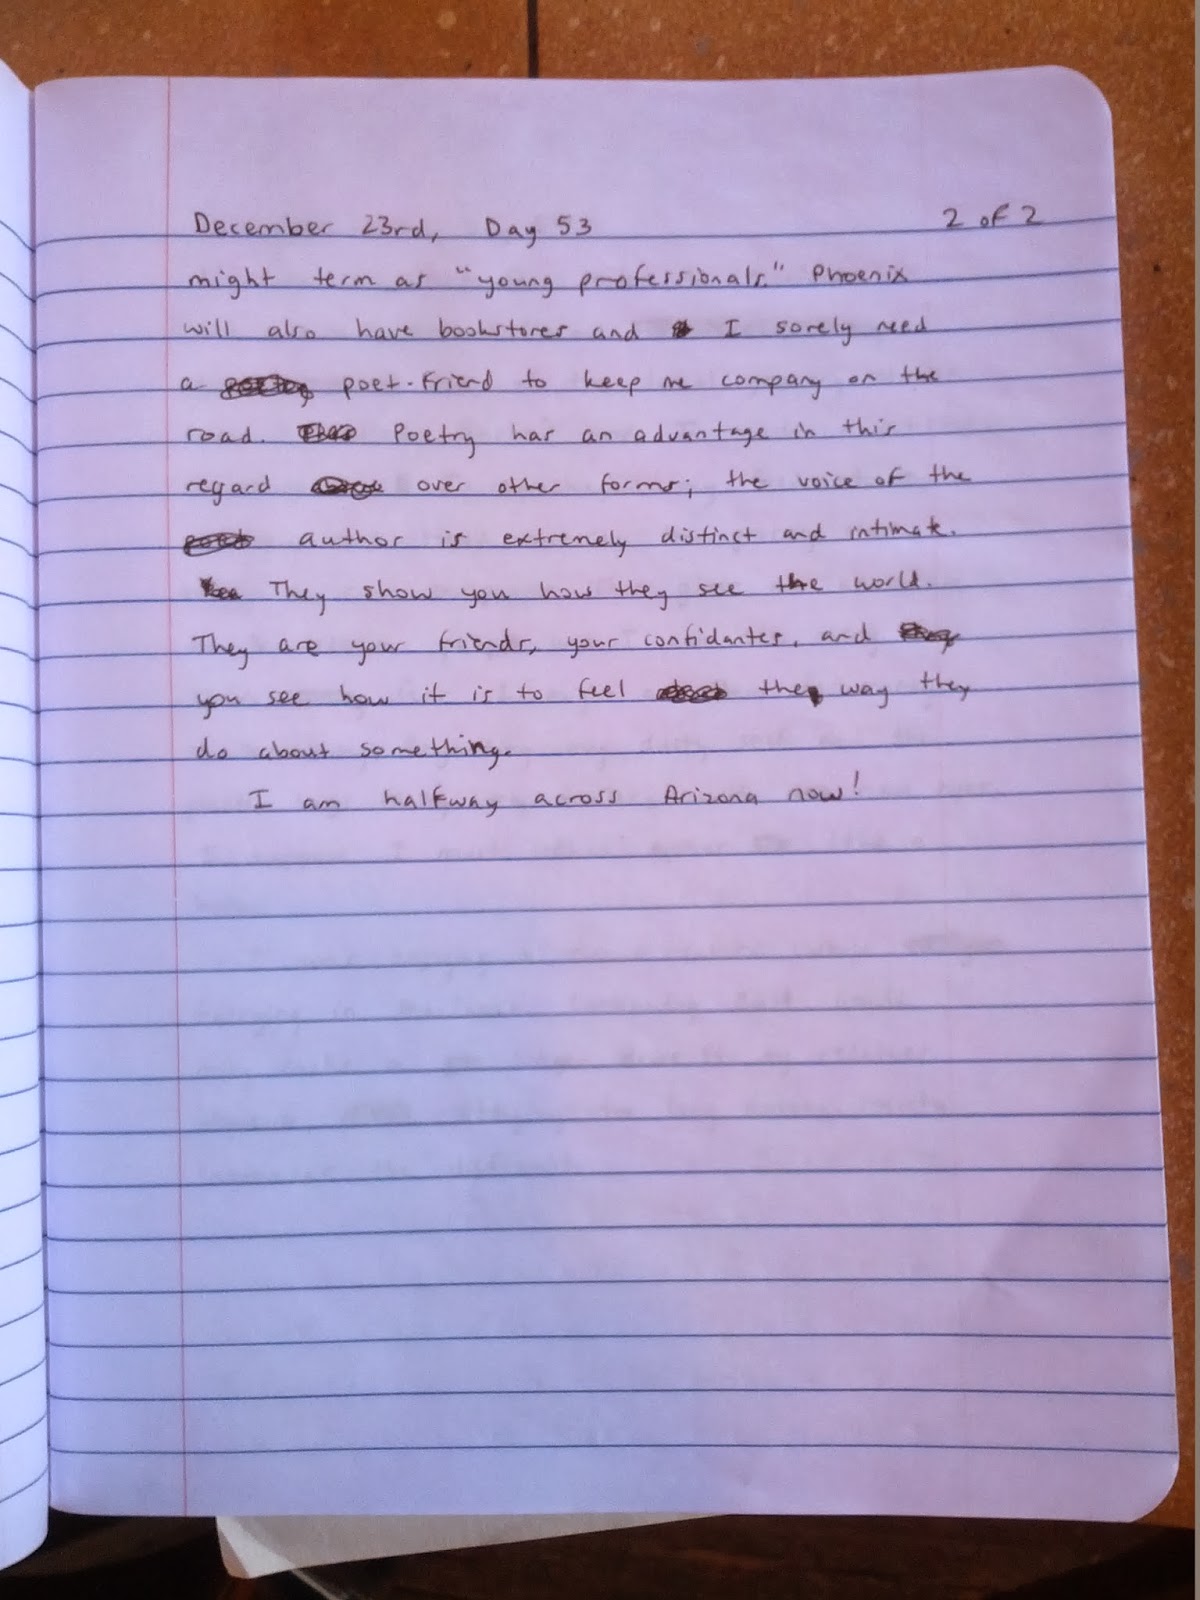 December 23rd, Day 53 2 of 2
might term as "young professionals." Phoenix
will also have bookstores and I sorely need
a poet-friend to keep me company on the
road. Poetry has an advantage in this
regard over other forms; the voice of the
author is extremely distinct and intimate.
They show you how they see the world.
They are your friends, your confidantes, and
you see how it is to feel the way they
do about something.
I am halfway across Arizona now!